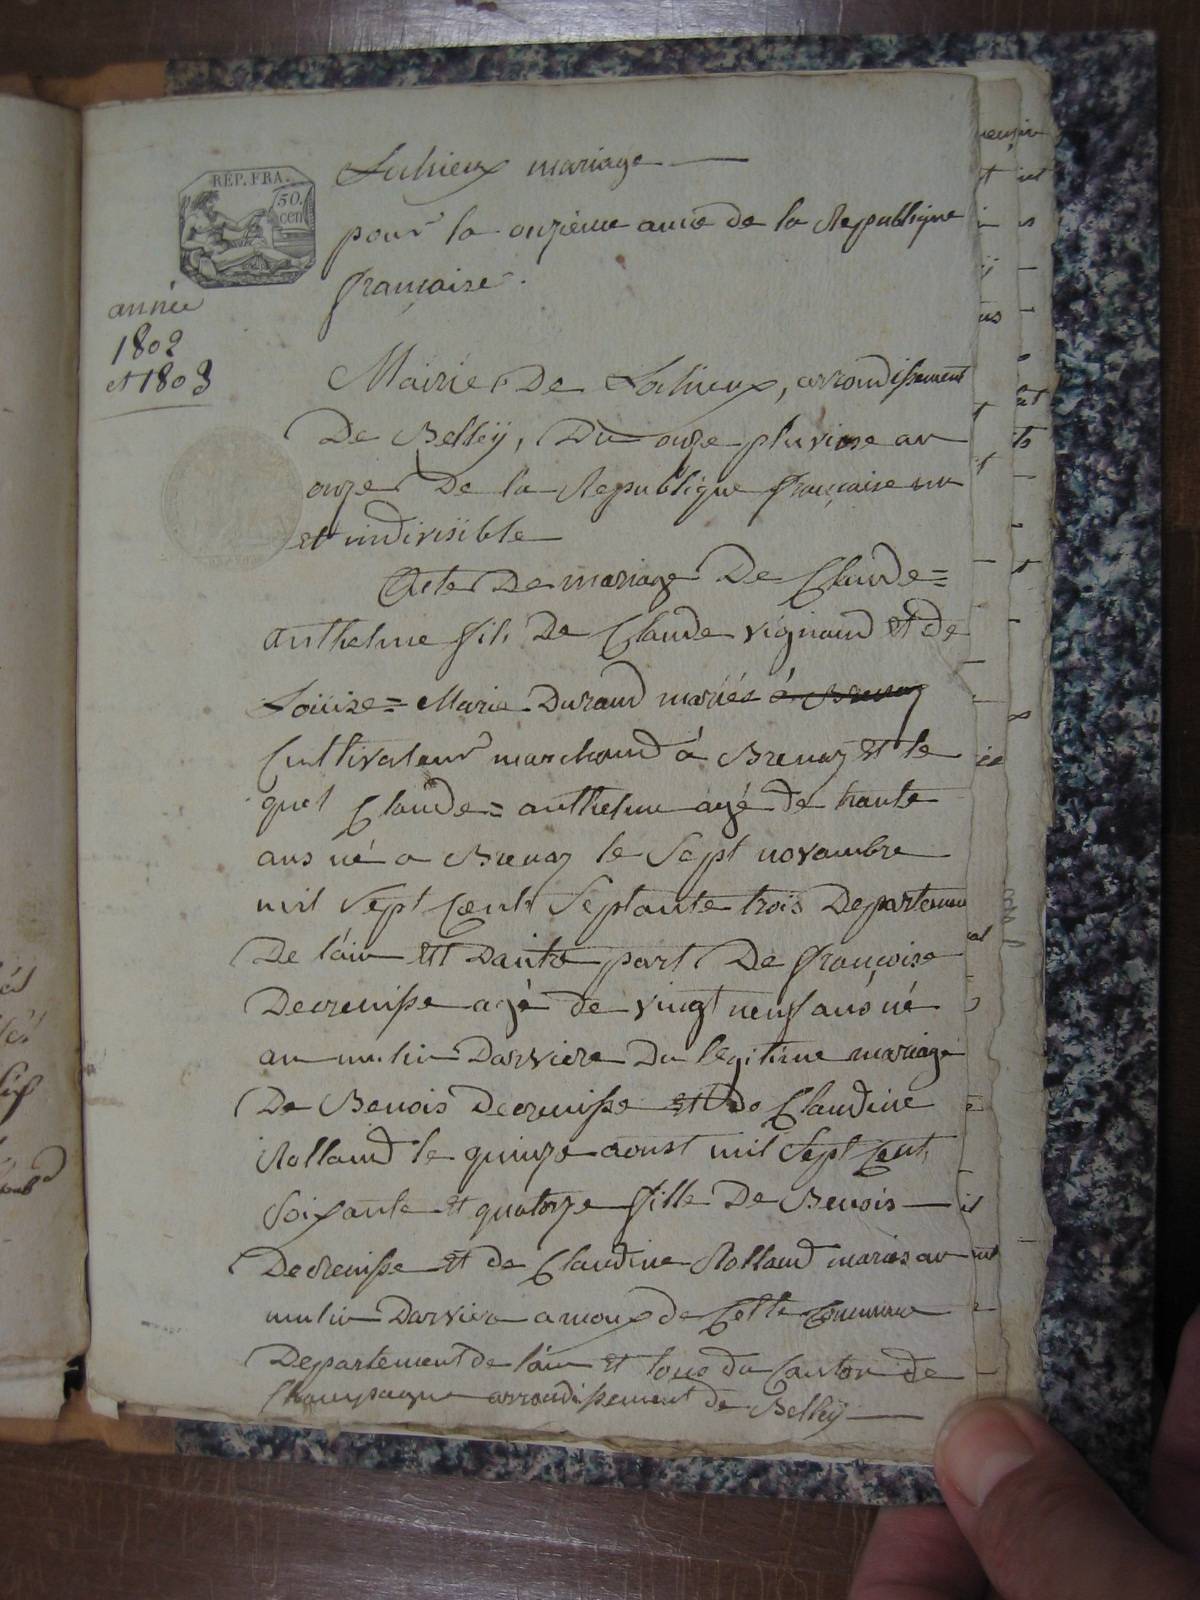 REP. FRA.
50.
cen
Lohieux mariage
pour la onzieme anné de la Republique
française.
année
1802
et 1803
Mairie De Lohieux, arrondissement
De Belleÿ, Du onze pluviose an
onze De la Republique française un
et indivisible
Acte De mariage De Claude=
anthelme fils De Claude vignaud et de
Loüise= Marie Durand mariés à Brenaz
Cultivateur marchand à Brenaz et le
quel Claude= anthelme agé de trante
ans né a Brenaz le Sept novambre
mil Sept Cent Septante trois Departemen
De l'ain et Dautre part De françoise
Decrenisse agé de vingt neuf ans né
au mulin Darviere Du légitime mariage
De Benois Decrenisse et de Claudine
Rolland le quinze aoust mil Sept Cent
Soixante et quatorze fille De Benois
Decrenisse et de Claudine Rolland mariés au
mulin Darviere de Cette Commune
Departement de l'ain et tous du Canton de
Champagne arrondissement de Belleÿ